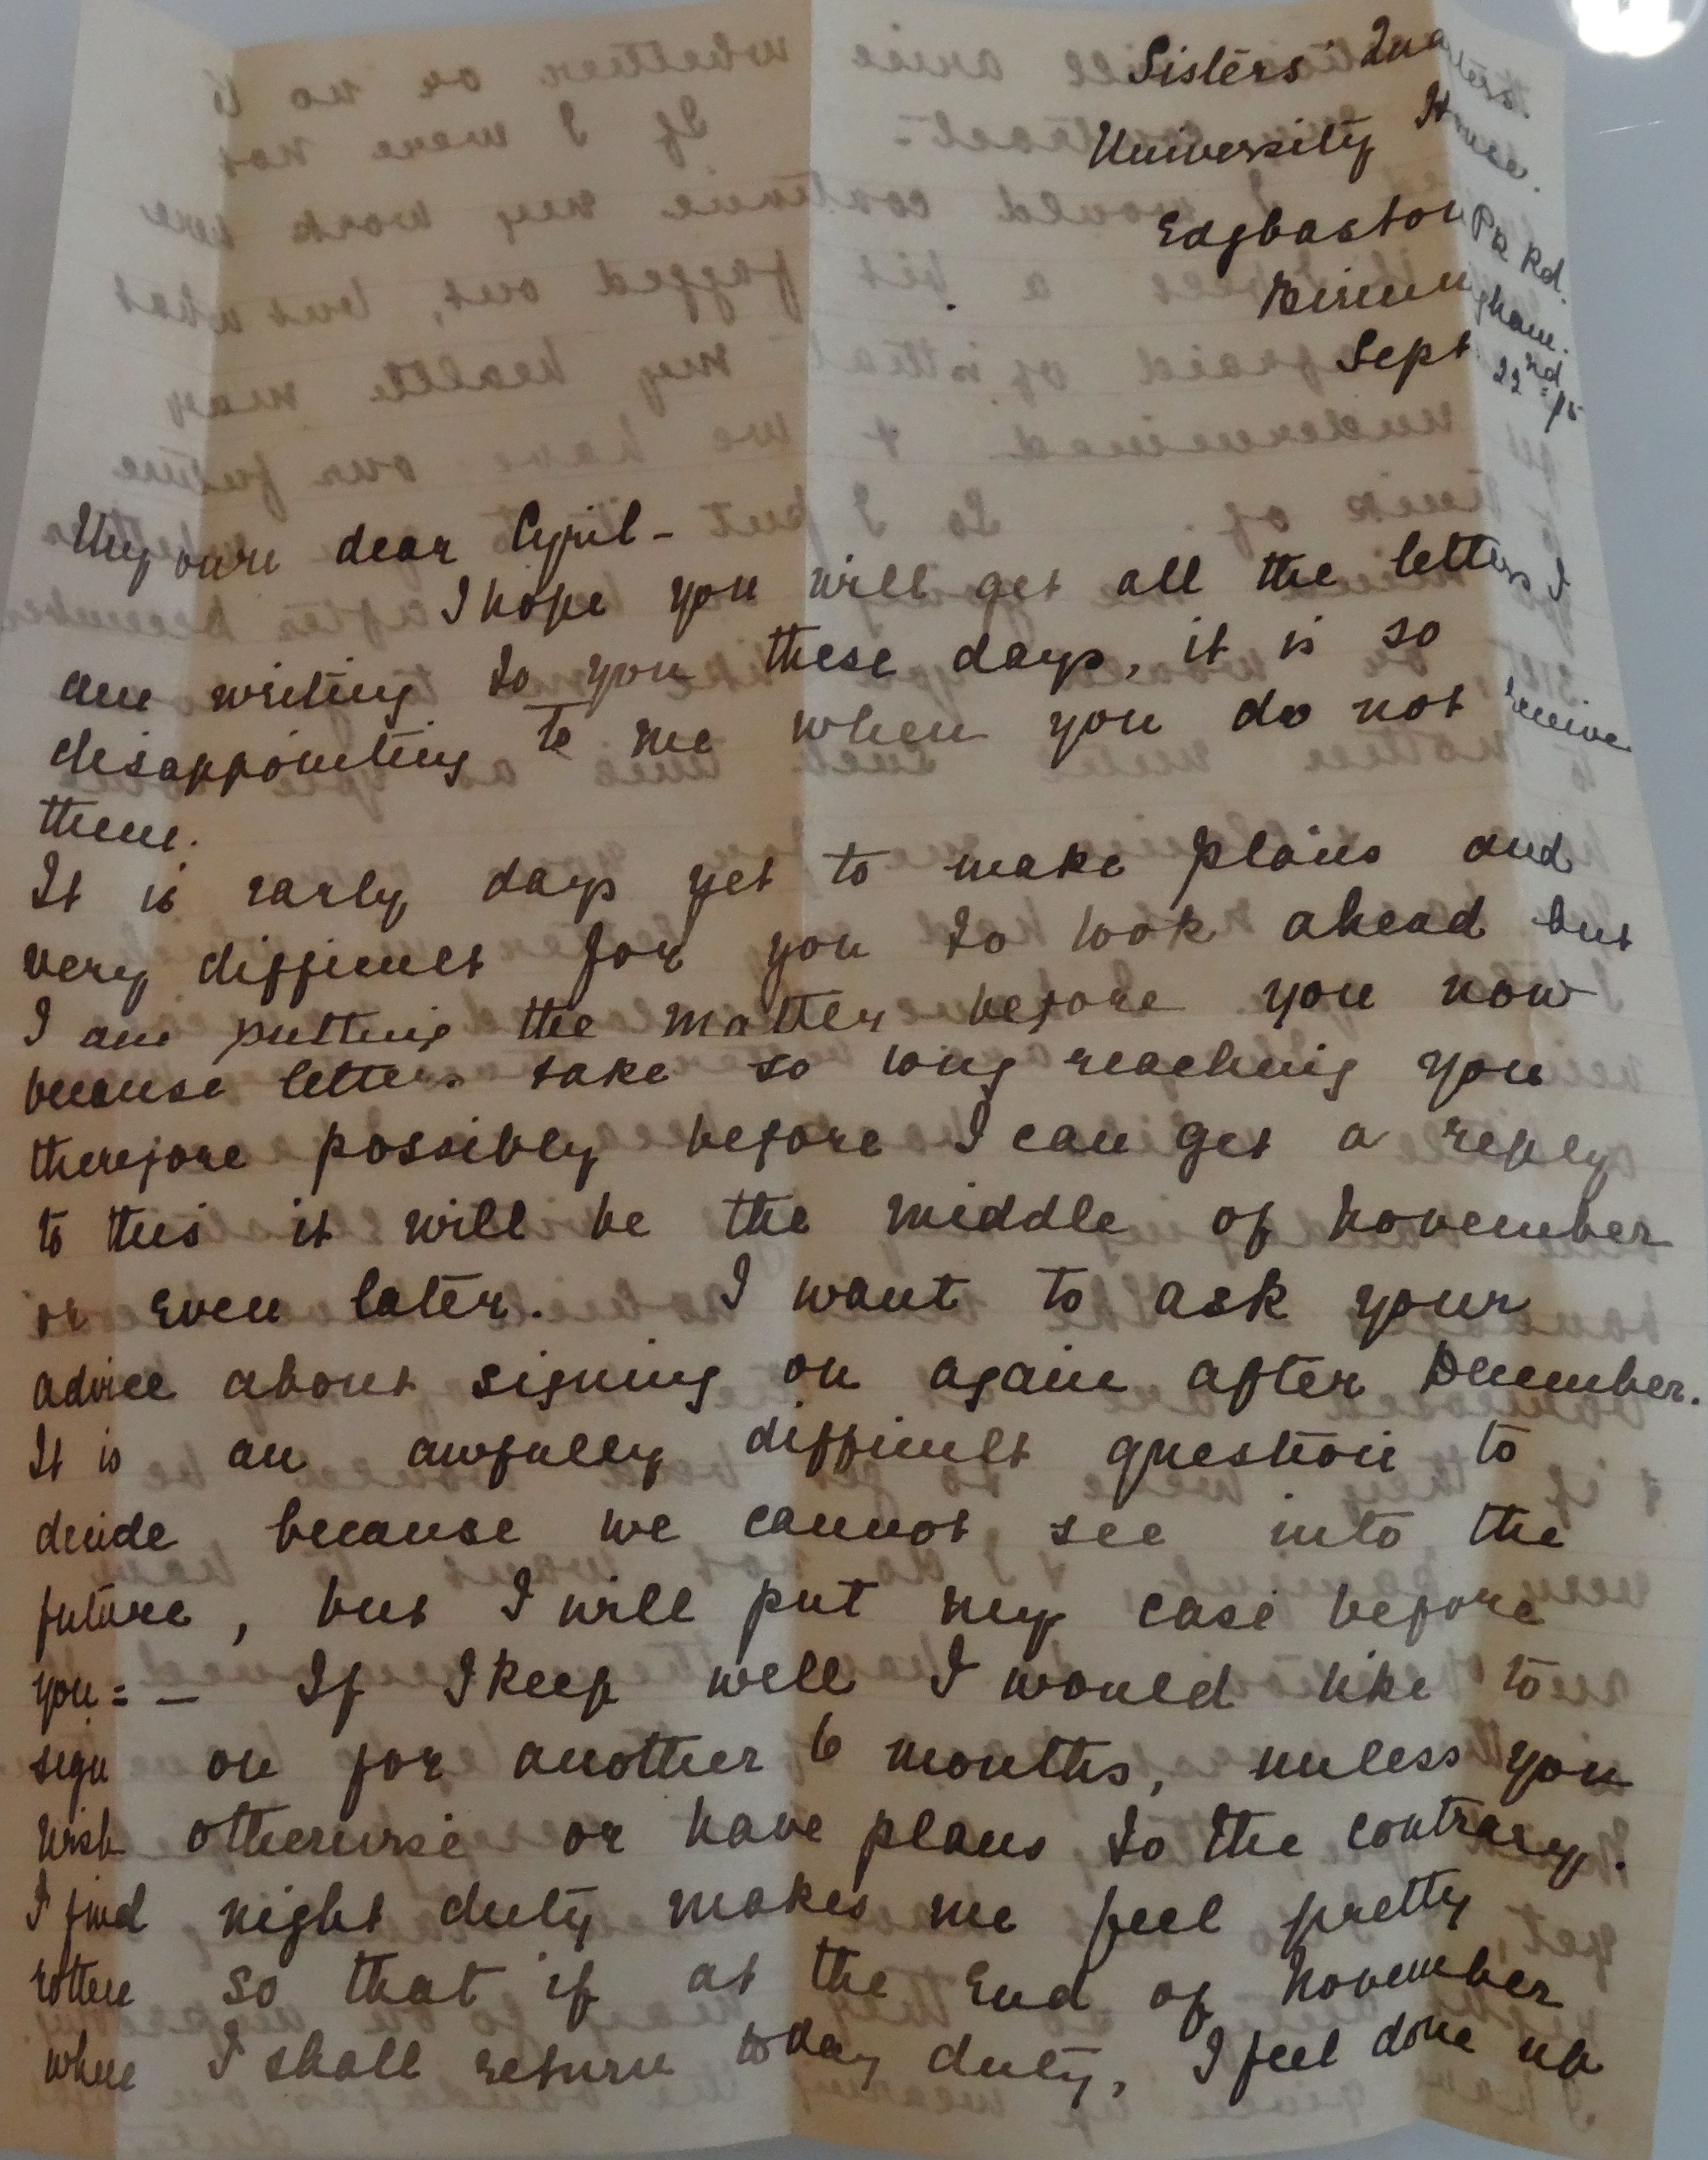 Sisters' Quarters.
University House.
Edgbaston Pk Rd.
Birmingham.
Sept. 22nd 15
My own dear Cyril -
I hope you will get all the letters I
am writing to you these days, it is so
disappointing to me when you do not receive
them.
It is early days yet to make plans and
very difficult for you to look ahead but
I am putting the matter before you now
because letters take so long reaching you
therefore possibly before I can get a reply
to this it will be the middle of November
or even later. I want to ask your
advice about signing on again after December.
It is an awfully difficult question to
decide because we cannot see into the
future, but I will put my case before
you: - If I keep well I would like to
sign on for another 6 months, unless you
wish otherwise or have plans to the contrary.
I find night duty makes me feel pretty
rotten so that if at the end of November
when I shall return to day duty, I feel done up